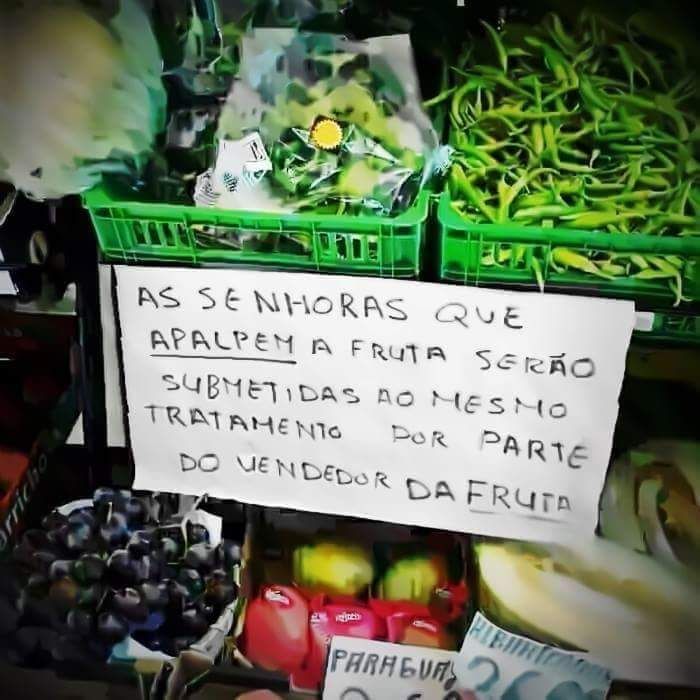 AS SENHORAS QUE
APALPEM A FRUTA SERÃO
SUBMETIDAS AO MESMO
TRATAMENTO POR PARTE
DO VENDEDOR DA FRUTA
PARAGUAY